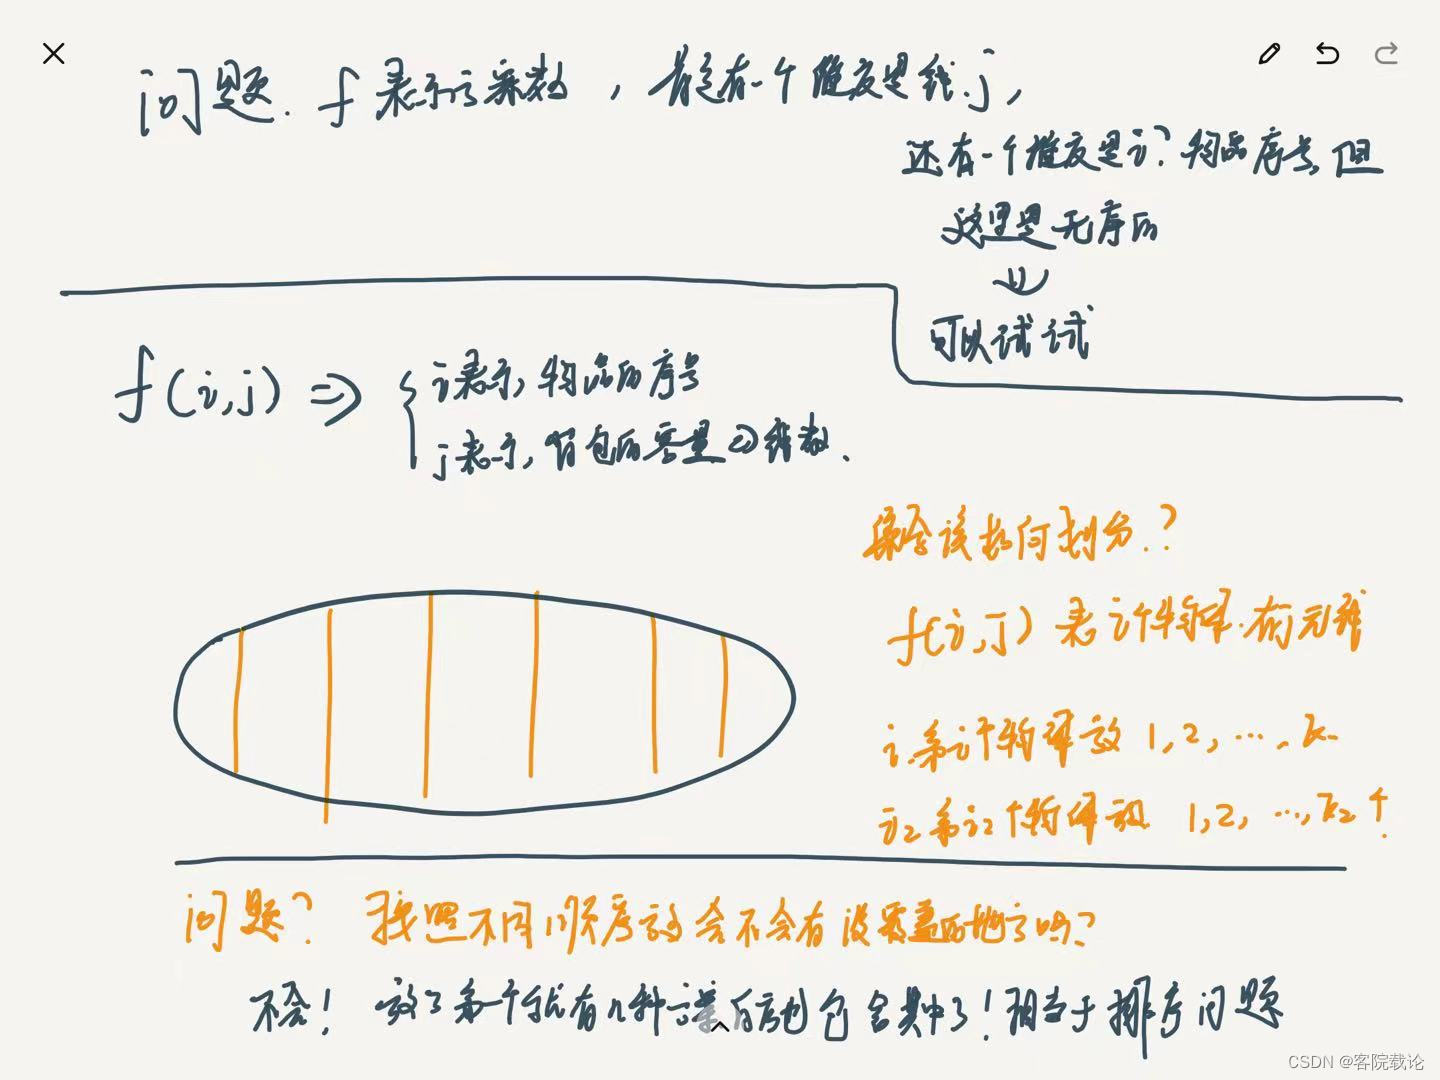 问题. f表示方案数，肯定有一个维度是钱j，
还有一个维度是i？物品序号，但
这里是无序的
可以试试
f(i,j) ⇒ { i表示，物品的序号
j表示，背包的容量⇒钱数.
集合该如何划分.？
f(i,j) 表i个物体.有j元钱
i.第i个物体放 1,2,…,k.
i2第i2个物体放 1,2,…,k2个.
问题？ 按照不同顺序放会不会有没覆盖的地方吗？
不会！ 放了第一个就有n种方案 包含其中了！相当于排序问题
CSDN @客院载论